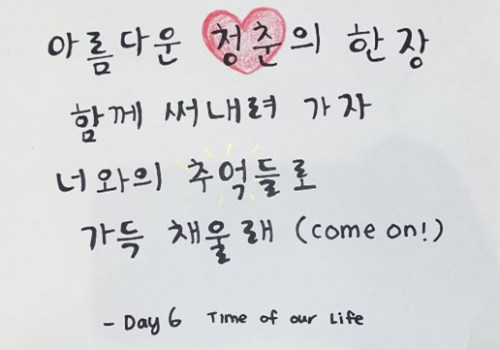 아름다운 청춘의 한 장
함께 써내려 가자
너와의 추억들로
가득 채울래 (come on!)
- Day 6 Time of our Life